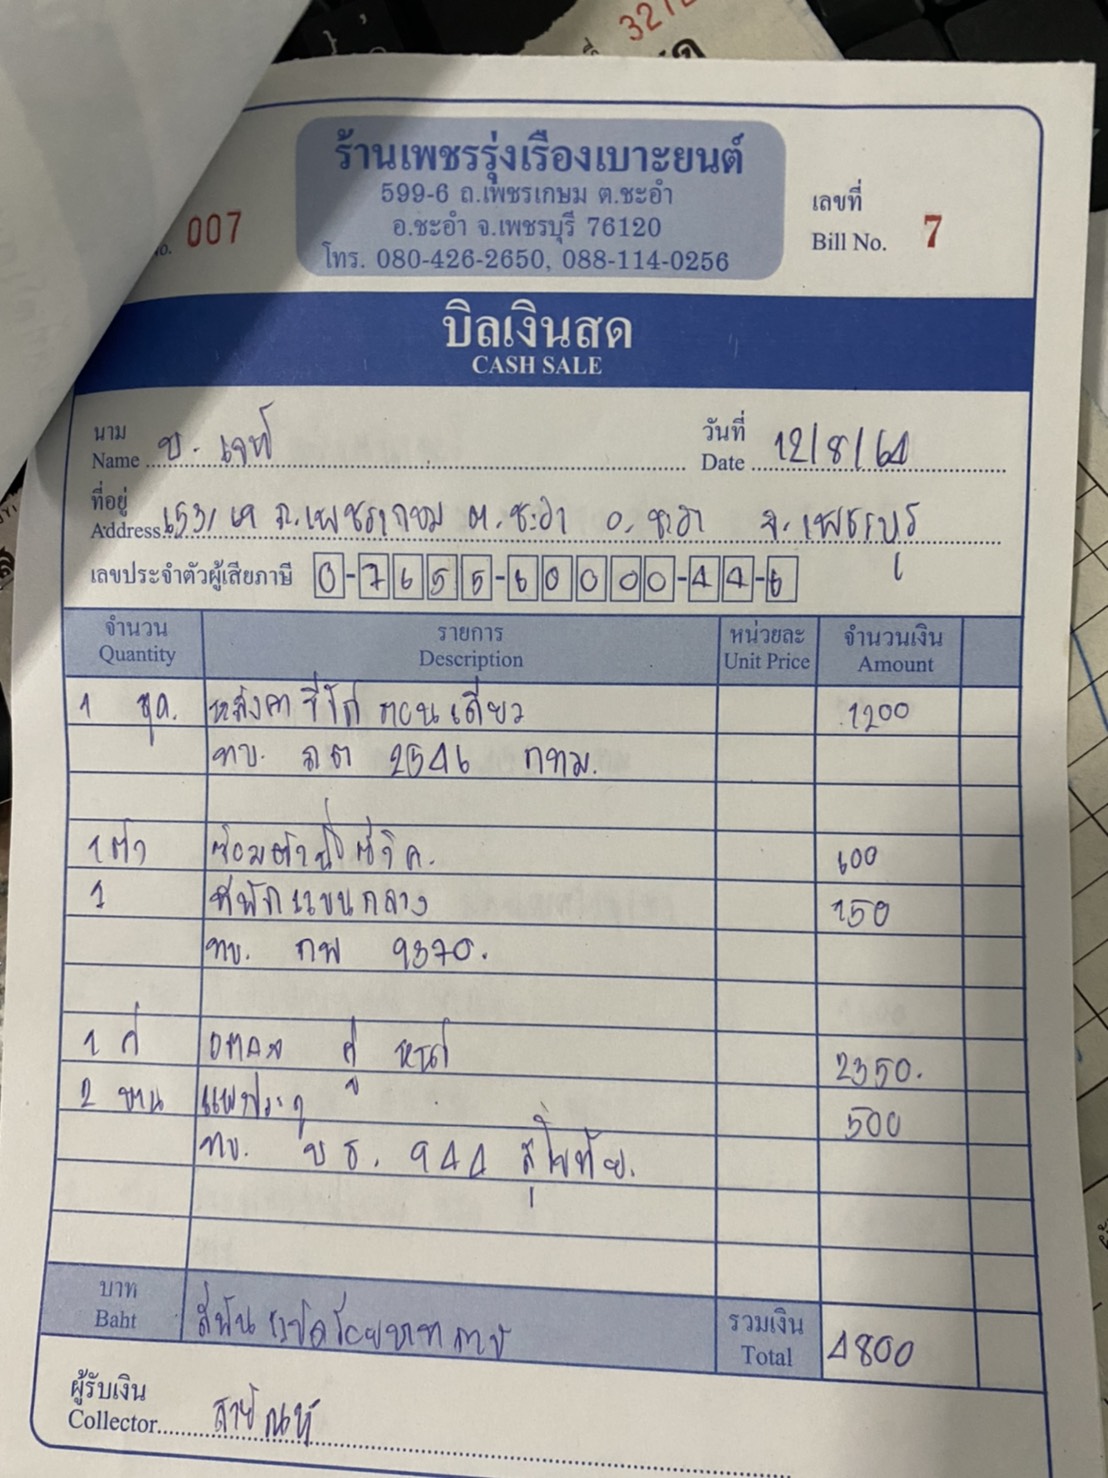 3212
ร้านเพชรรุ่งเรืองเบาะยนต์
599-6 ถ.เพชรเกษม ต.ชะอำ
อ.ชะอำ จ.เพชรบุรี 76120
โทร. 080-426-2650, 088-114-0256
No. 007
เลขที่
Bill No. 7
บิลเงินสด
CASH SALE
นาม
Name บ. เจฟ
วันที่
Date 12/8/64
ที่อยู่
Address ถ.เพชรเกษม ต.ชะอำ อ.ชะอำ จ.เพชรบุรี
เลขประจำตัวผู้เสียภาษี 0-7655-60000-44-6
จำนวน รายการ หน่วยละ จำนวนเงิน
Quantity Description Unit Price Amount
1 ชุด. หลังคา ตอนเดียว 1200
ทบ. 2546 กทม.
1 ตัว ซ่อม 600
1 ที่พักแขนกลาง 150
ทบ. กพ 9370.
1 คู่ หน้า 2350.
2 บาน แผงประตู 500
ทบ. บธ. 944 สุโขทัย.
บาท
Baht สี่พันแปดร้อยบาทถ้วน
รวมเงิน
Total 4800
ผู้รับเงิน
Collector